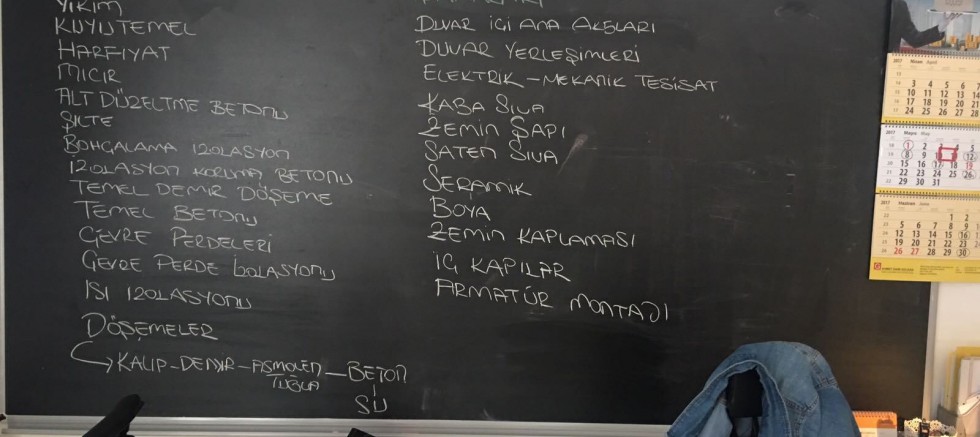 YIKIM
KUYU TEMEL
HARFİYAT
MICIR
ALT DÜZELTME BETONU
ŞİLTE
BOHÇALAMA İZOLASYON
İZOLASYON KORUMA BETONU
TEMEL DEMİR DÖŞEME
TEMEL BETONU
ÇEVRE PERDELERİ
ÇEVRE PERDE İZOLASYONU
ISI İZOLASYONU
DÖŞEMELER
KALIP-DEMİR-ASMOLEN-BETON
TUĞLA
SU
DUVAR İÇİ ANA AKSLARI
DUVAR YERLEŞİMLERİ
ELEKTRİK-MEKANİK TESİSAT
KABA SIVA
ZEMİN ŞAPI
SATEN SIVA
SERAMİK
BOYA
ZEMİN KAPLAMASI
İÇ KAPILAR
ARMATÜR MONTAJI
2017 Nisan
3 4 5 6 7
10 11 12 13 14
17 18 19 20 21
24 25 26 27 28
2017 Mayıs
1 2 4 5
8 9 12
15 16 17 18 19
22 23 24 25 26
29 30 31
2017 Haziran
1 2
5 6 7 8 9
12 13 14 15 16
19 20 21 22 23
26 27 28 29 30